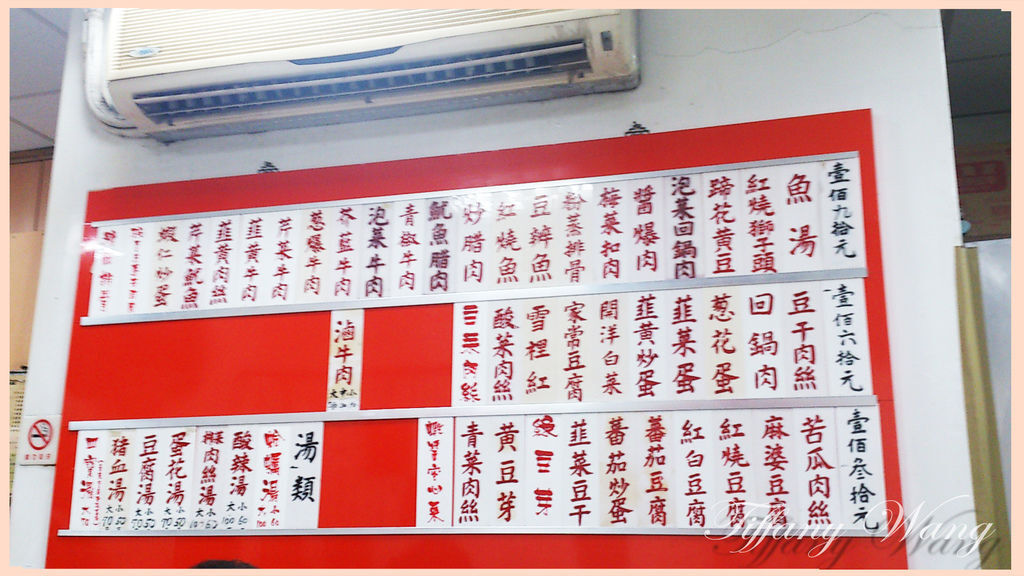 壹佰九拾元
魚湯
紅燒獅子頭
蹄花黃豆
泡菜回鍋肉
醬爆肉
梅菜扣肉
粉蒸排骨
豆瓣魚
紅燒魚
炒腊肉
魷魚腊肉
青椒牛肉
泡菜牛肉
芥藍牛肉
葱爆牛肉
芹菜牛肉
韮黃牛肉
韮黃肉絲
芹菜魷魚
蝦仁炒蛋
壹佰六拾元
豆干肉絲
回鍋肉
葱花蛋
韮菜蛋
韮黃炒蛋
開洋白菜
家常豆腐
雪裡紅
酸菜肉絲
滷牛肉
大中小
壹佰叁拾元
苦瓜肉絲
麻婆豆腐
紅燒豆腐
紅白豆腐
蕃茄豆腐
蕃茄炒蛋
韮菜豆干
黃豆芽
青菜肉絲
湯類
酸辣湯 大100 小60
榨菜肉絲湯 大100 小60
蛋花湯 大70 小50
豆腐湯 大70 小50
豬血湯 大70 小50
Tiffany Wang